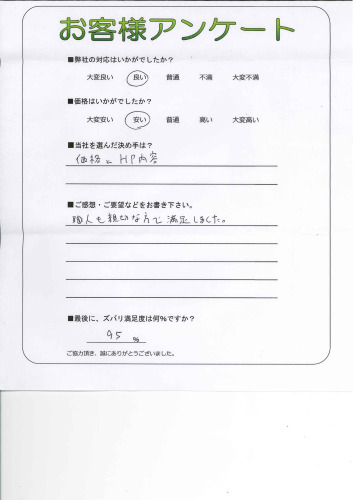 お客様アンケート
■弊社の対応はいかがでしたか?
大変良い 良い 普通 不満 大変不満
■価格はいかがでしたか?
大変安い 安い 普通 高い 大変高い
■当社を選んだ決め手は?
価格とHP内容
■ご感想・ご要望などをお書き下さい。
職人も親切な方で満足しました。
■最後に、ズバリ満足度は何%ですか?
95 %
ご協力頂き、誠にありがとうございました。